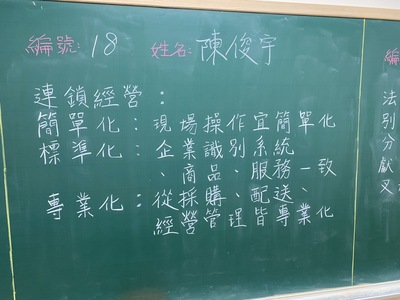 編號：18 姓名：陳俊宇
連鎖經營：
簡單化：現場操作宜簡單化
標準化：企業識別系統
、商品、服務一致
專業化：從採購、配送、
經營管理皆專業化
編
法
別
分
獻
又